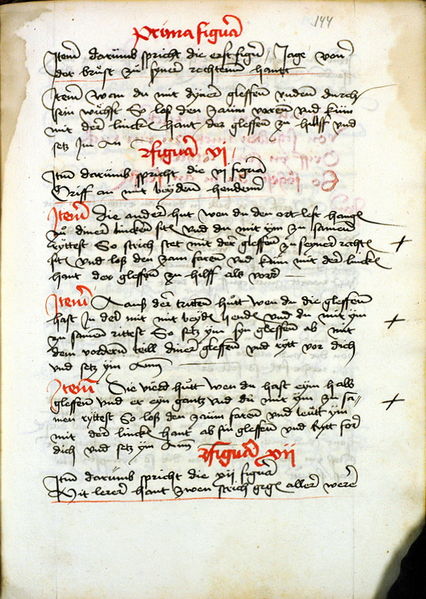 144
Prima figura
Item darumb spricht die erst figur Jage von
der brust zu siner rechtenn hant
Item wan du mit diner gleffen vnden durch
wilst So loß den zaum varenn vnd kum
mit der lincken hant der gleffen zu hilff vnd
setz
figura vi
Itm darumb spricht die vi figura
Griff an mit beydenn hendenn
Item die ander hut wen du den ort lest hangen
zu diner lincken sitt vnd du mit ym zu samend
ryttest So strich stet mit der gleffen zu seyner rechte
sit vnd loß den zam faren vnd kum mit der lincke
hant der gleffen zu hilff als vor
Item auß der tritten hutt wen du die gleffenn
hast In der mit mit beyde hende vnd du mit ym
zu samen rittest So setz ym sin gleffen ab mit
dem vordern teill diner gleffen vnd rytt vor dich
vnd setz ym
Item Die vierd hutt wen du hast eyn halb
gleffen vnd er eyn gantz vnd du mit ym zu sa-
men ryttest So loß den zaum faren vnd
mit der lincke hant ab sin gleffen vnd Rytt for
dich vnd setz ym
figura xii
Itm darumb spricht die xii figura
Mit lerer hant zwen strich gege aller were